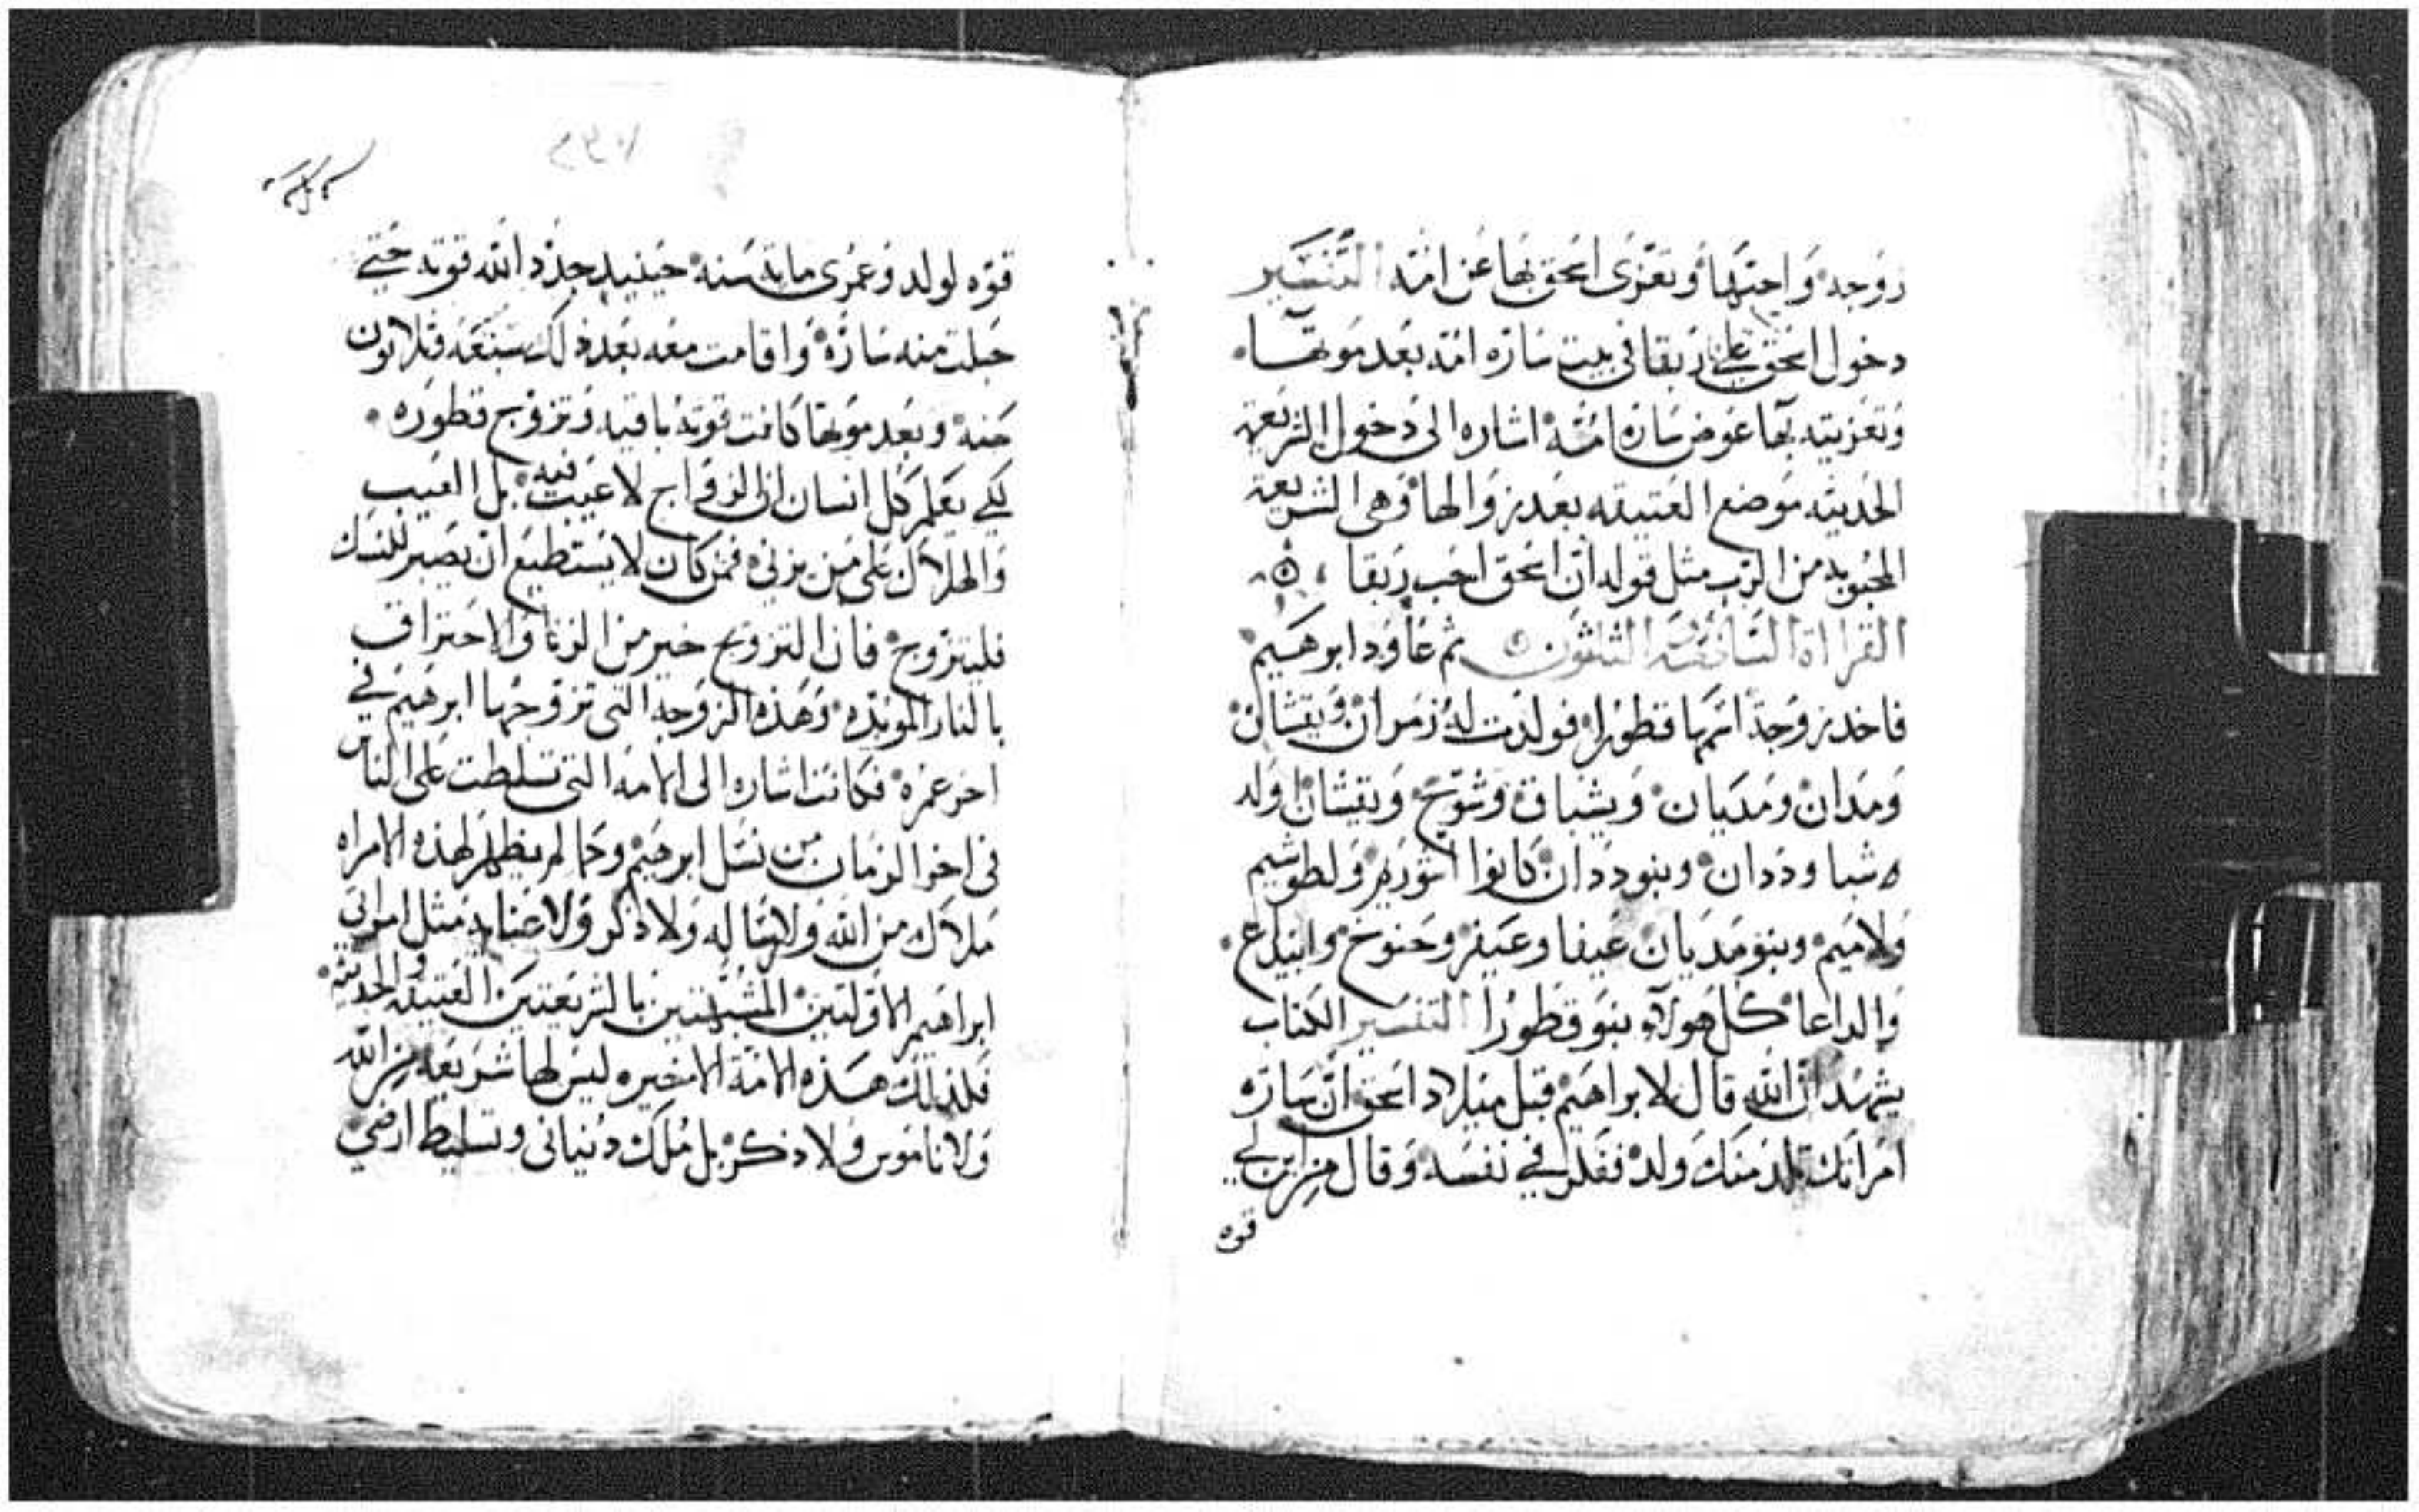 زوجه واحبها وتعزى اسحق بها عن امه التفسير
دخول اسحق على ربقا فى بيت ساره امه بعد موتها
وتعزيته بها عوض ساره امه اشاره الى دخول الشريعه
الحديثه موضع العتيقه بعد زوالها وهى الشريعه
المحبوبه من الرب مثل قوله ان اسحق احب ربقا
القراة السابعه الثلثون ثم عاود ابرهيم
فاخد زوجة اسمها قطورا فولدت له زمران ويقشان
ومدان ومديان ويشباق وشوح ويقشان اولد
شبا وددان وبنو ددان كانوا اشوريم ولطوشيم
ولاميم وبنو مديان عيفا وعيفر وحنوخ وابيداع
والداعا كل هولآء بنو قطورا التفسير الكتاب
يشهد ان الله قال لابراهيم قبل ميلاد اسحق ان ساره
امراتك تلد منك ولد ففكر فى نفسه وقال من اين لي
قوه
قوه لولد وعمرى مايه سنه حينيد جدد الله قوته حتي
حبلت منه ساره واقامت معه بعد ذلك سبعه وثلاثون
سنه وبعد موتها كانت قوته باقيه وتزوج قطوره
لكي يعلم كل انسان ان الزواج لا عيب فيه بل العيب
والهلاك على من يزنى فمن كان لا يستطيع ان يصبر للنسك
فليتزوج فان التزوج خير من الزنا والاحتراق
بالنار الموبده وهذه الزوجه التى تزوجها ابرهيم في
اخر عمره فكانت اشاره الى الامه التى تسلطت على الناس
فى اخر الزمان من نسل ابرهيم وكما لم يظهر لهذه الامراه
ملاك من الله ولا رساله ولا ذكر ولا عنايه مثل امراتى
ابراهيم الاولتين المشبهتين بالشريعتين العتيقه والحديثه
فلذلك هذه الامة الاخيره ليس لها شريعه من الله
ولا ناموس ولا ذكر بل ملك دنيانى وتسليط ارضي